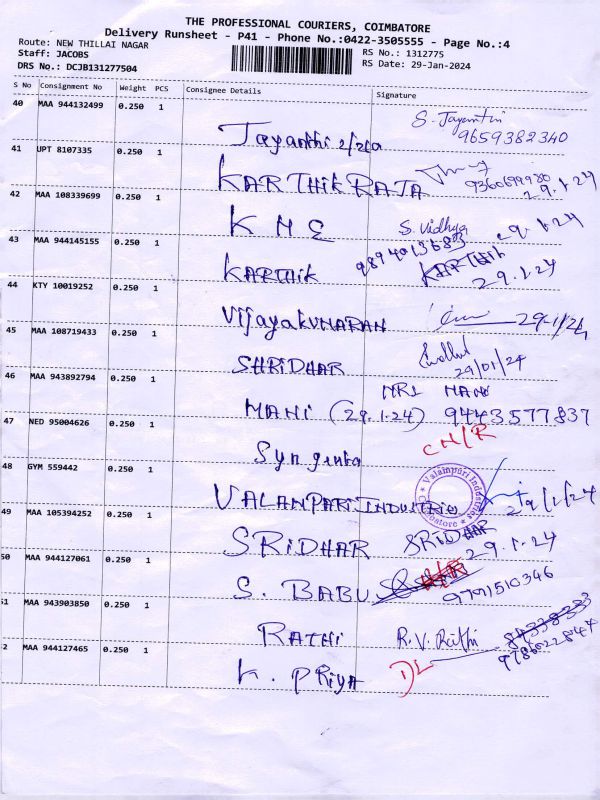 THE PROFESSIONAL COURIERS, COIMBATORE
Delivery Runsheet - P41 - Phone No.:0422-3505555 - Page No.:4
Route: NEW THILLAI NAGAR
Staff: JACOBS
RS No.: 1312775
DRS No.: DCJB131277504
RS Date: 29-Jan-2024
S No Consignment No Weight PCS Consignee Details Signature
40 MAA 944132499 0.250 1 S. Jayanthi
9659382340
Jayanthi
41 UPT 8107335 0.250 1
KARTHIK RAJA 29.1.24
42 MAA 108339699 0.250 1
K N E S. Vidhya 29.1.24
43 MAA 944145155 0.250 1
KARTHIK KARTHIK 29.1.24
44 KTY 10019252 0.250 1
VijayaKUMARAN 29-1/24
45 MAA 108719433 0.250 1
SHRIDHAR 29/01/24
46 MAA 943892794 0.250 1
MANI (29.1.24) 9443577837
47 NED 95004626 0.250 1 CN/R
Syngenta
48 GYM 559442 0.250 1
VALANPARI INDUSTRIES 29/1/24
Valampuri Industries
Coimbatore
49 MAA 105394252 0.250 1
SRIDHAR SRIDHAR 29.1.24
50 MAA 944127061 0.250 1
S. BABU 9791510346
51 MAA 943903850 0.250 1
RATHI R.V. Rathi
52 MAA 944127465 0.250 1
K. PRiyA DL